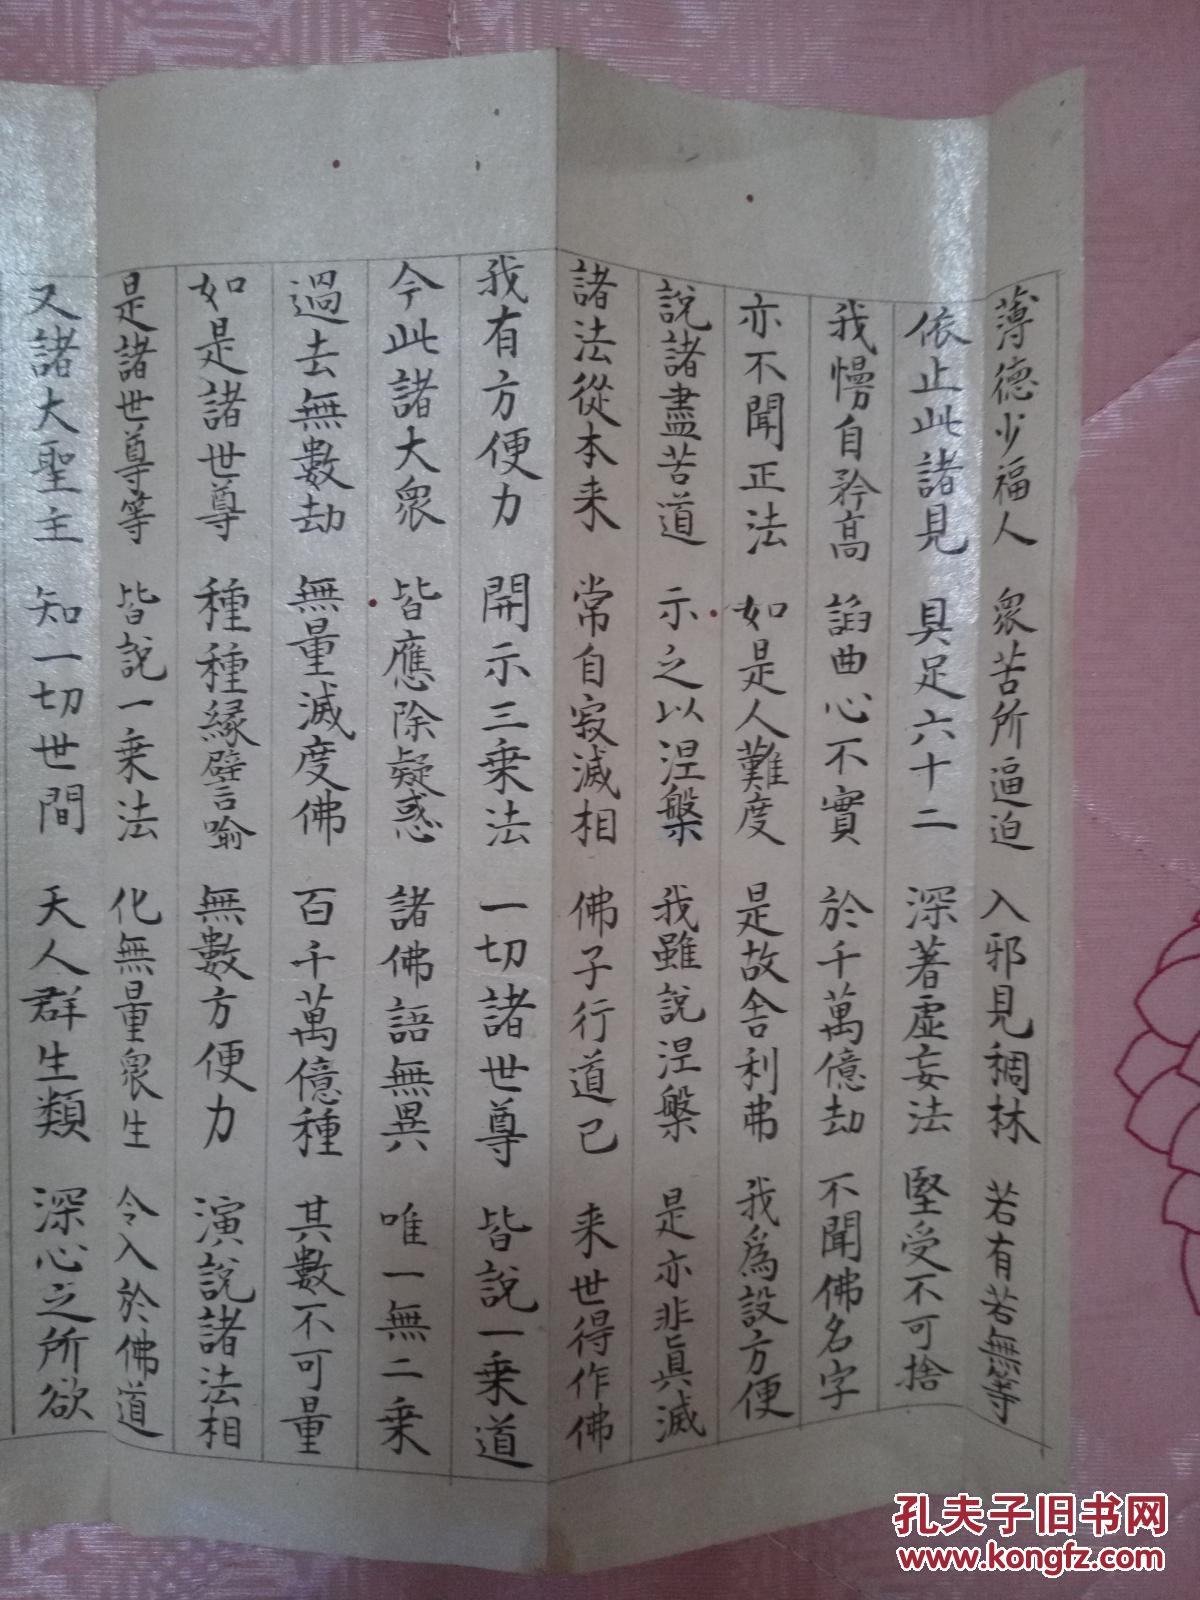 薄德少福人 眾苦所逼迫 入邪見稠林 若有若無等
依止此諸見 具足六十二 深著虛妄法 堅受不可捨
我慢自矜高 諂曲心不實 於千萬億劫 不聞佛名字
亦不聞正法 如是人難度 是故舍利弗 我為設方便
說諸盡苦道 示之以涅槃 我雖說涅槃 是亦非真滅
諸法從本来 常自寂滅相 佛子行道已 来世得作佛
我有方便力 開示三乘法 一切諸世尊 皆說一乘道
今此諸大眾 皆應除疑惑 諸佛語無異 唯一無二乘
過去無數劫 無量滅度佛 百千萬億種 其數不可量
如是諸世尊 種種緣譬喻 無數方便力 演說諸法相
是諸世尊等 皆說一乘法 化無量眾生 令入於佛道
又諸大聖主 知一切世間 天人群生類 深心之所欲
孔夫子旧书网
www.kongfz.com